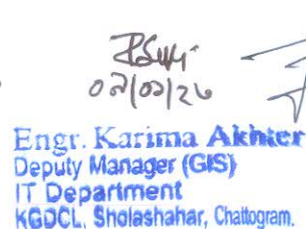 Engr. Karima Akhter
Deputy Manager (GIS)
IT Department
KGDCL, Sholashahar, Chattogram.